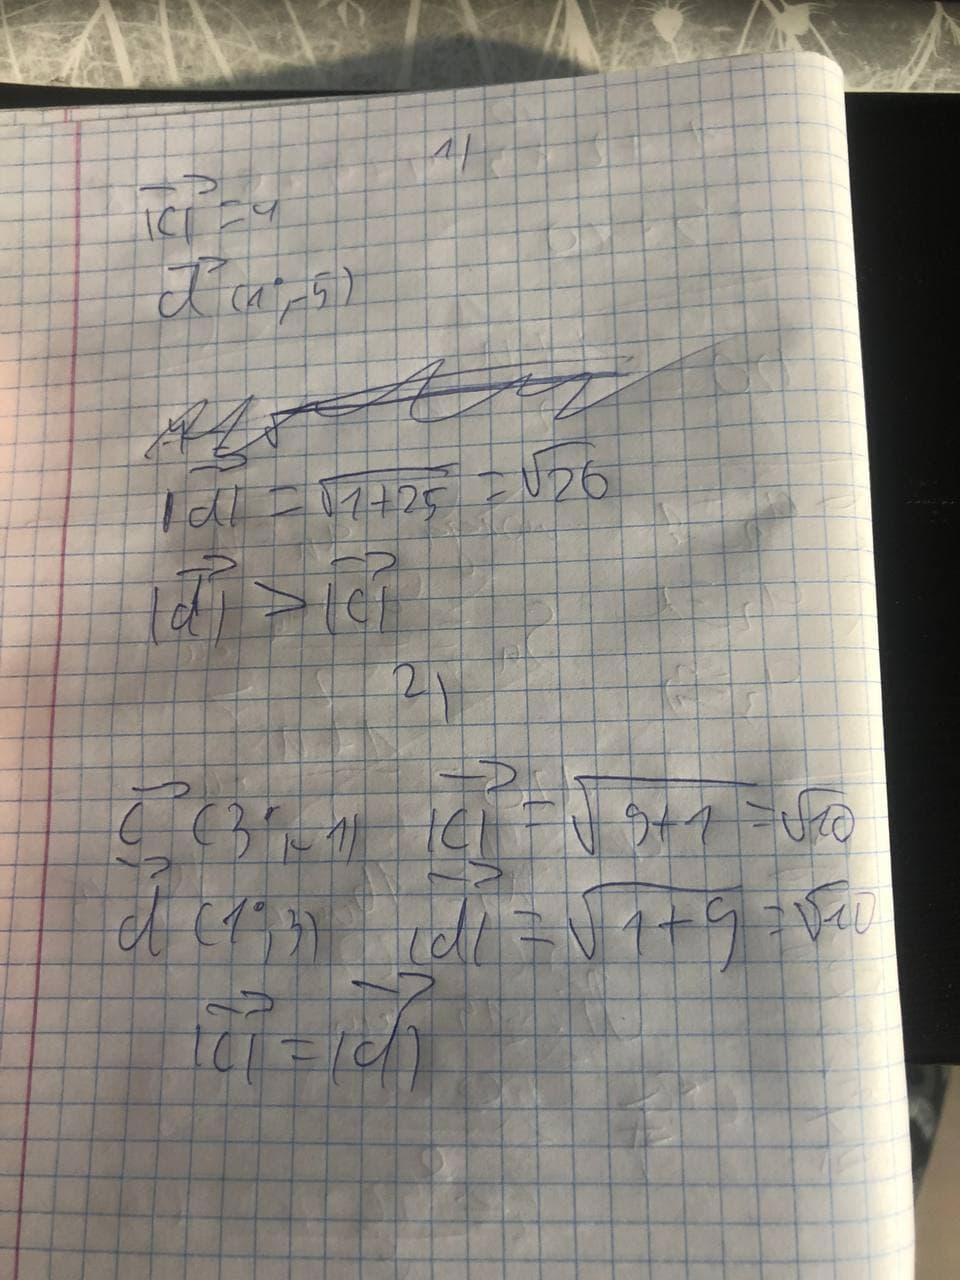 1)
|c⃗| = 4
d⃗ (1; -5)
|d⃗| = √1+25 = √26
|d⃗| > |c⃗|
2)
c⃗ (3; -1) |c⃗| = √9+1 = √10
d⃗ (1; 3) |d⃗| = √1+9 = √10
|c⃗| = |d⃗|